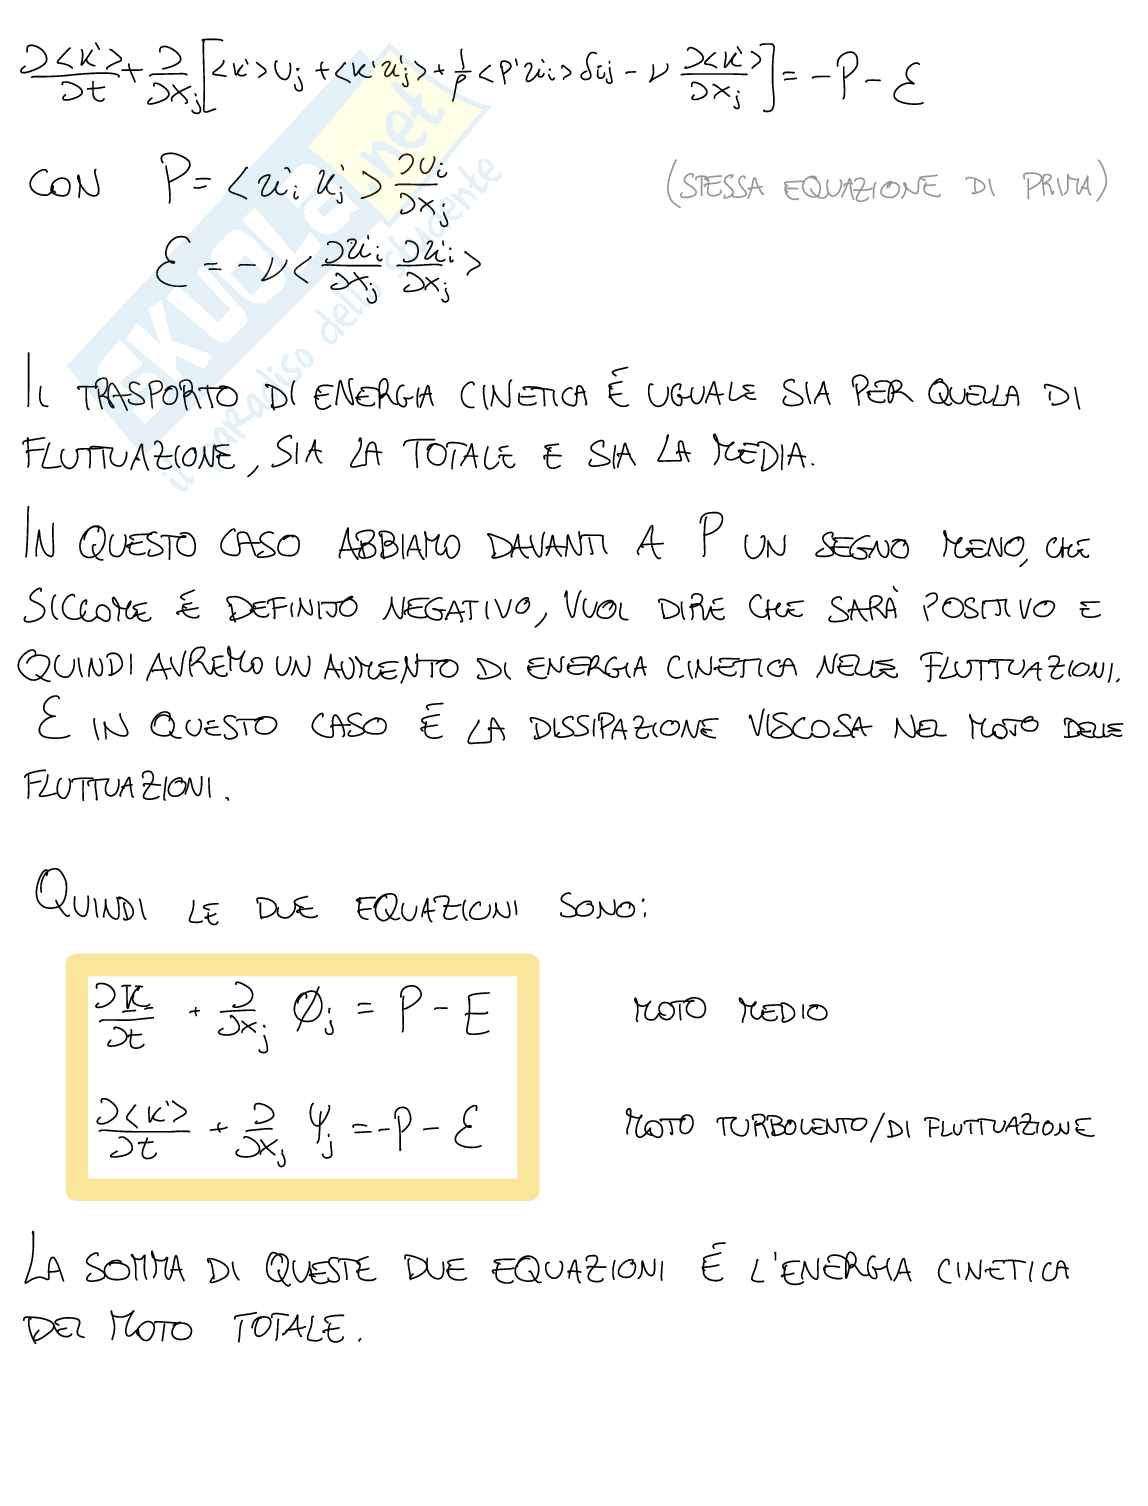 ∂<k'>/∂t + ∂/∂xj [<k'>Uj + <k'u'j> + 1/ρ <p'u'i> δij - ν ∂<k'>/∂xj] = -P - ε
CON P = <u'i u'j> ∂Ui/∂xj (STESSA EQUAZIONE DI PRIMA)
ε = -ν <∂u'i/∂xj ∂u'i/∂xj>
IL TRASPORTO DI ENERGIA CINETICA É UGUALE SIA PER QUELLA DI
FLUTTUAZIONE, SIA LA TOTALE E SIA LA MEDIA.
IN QUESTO CASO ABBIAMO DAVANTI A P UN SEGNO MENO, CHE
SICCOME É DEFINITO NEGATIVO, VUOL DIRE CHE SARÀ POSITIVO E
QUINDI AVREMO UN AUMENTO DI ENERGIA CINETICA NELLE FLUTTUAZIONI.
ε IN QUESTO CASO É LA DISSIPAZIONE VISCOSA NEL MOTO DELLE
FLUTTUAZIONI.
QUINDI LE DUE EQUAZIONI SONO:
∂K/∂t + ∂/∂xj Øj = P - E MOTO MEDIO
∂<k'>/∂t + ∂/∂xj Ψj = -P - ε MOTO TURBOLENTO/DI FLUTTUAZIONE
LA SOMMA DI QUESTE DUE EQUAZIONI É L'ENERGIA CINETICA
DEL MOTO TOTALE.
SKUOLA.net
il paradiso dello studente